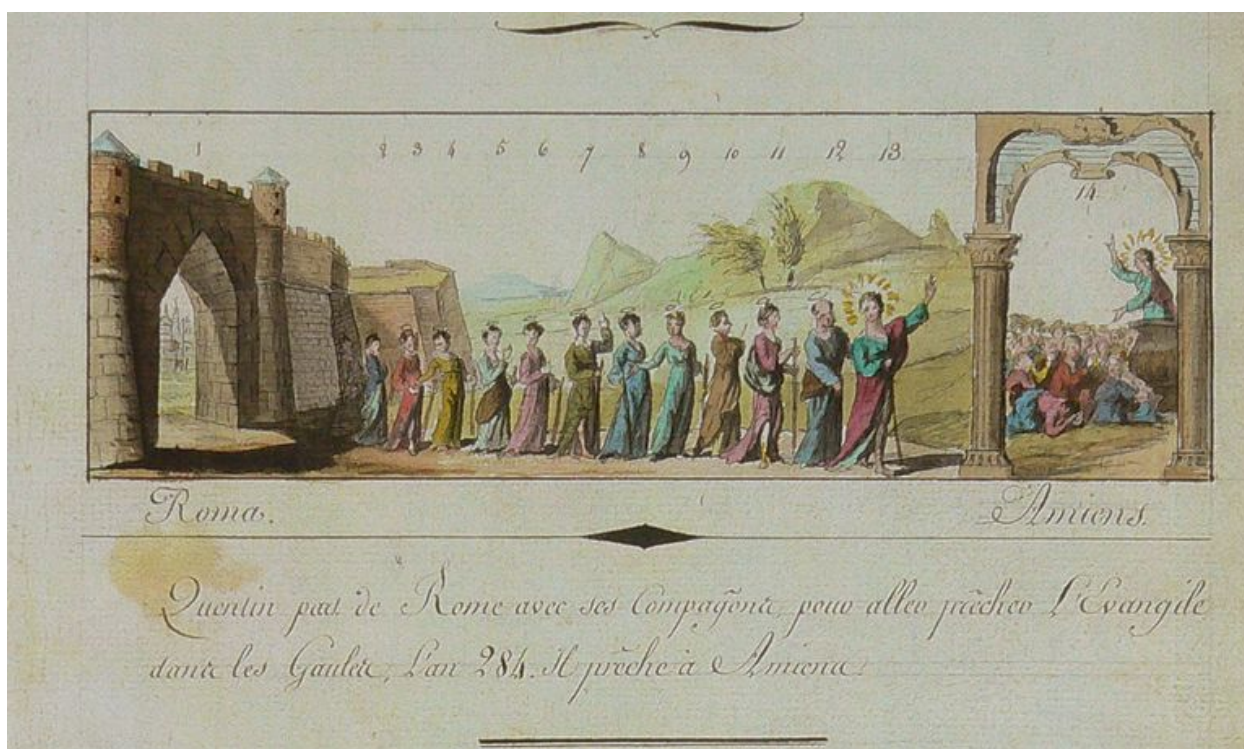 1 2 3 4 5 6 7 8 9 10 11 12 13
14
Roma. Amiens.
Quentin part de Rome avec ses Compagons, pour aller prêcher L'Evangile
dans les Gaules, L'an 284. Il prêche à Amiens.